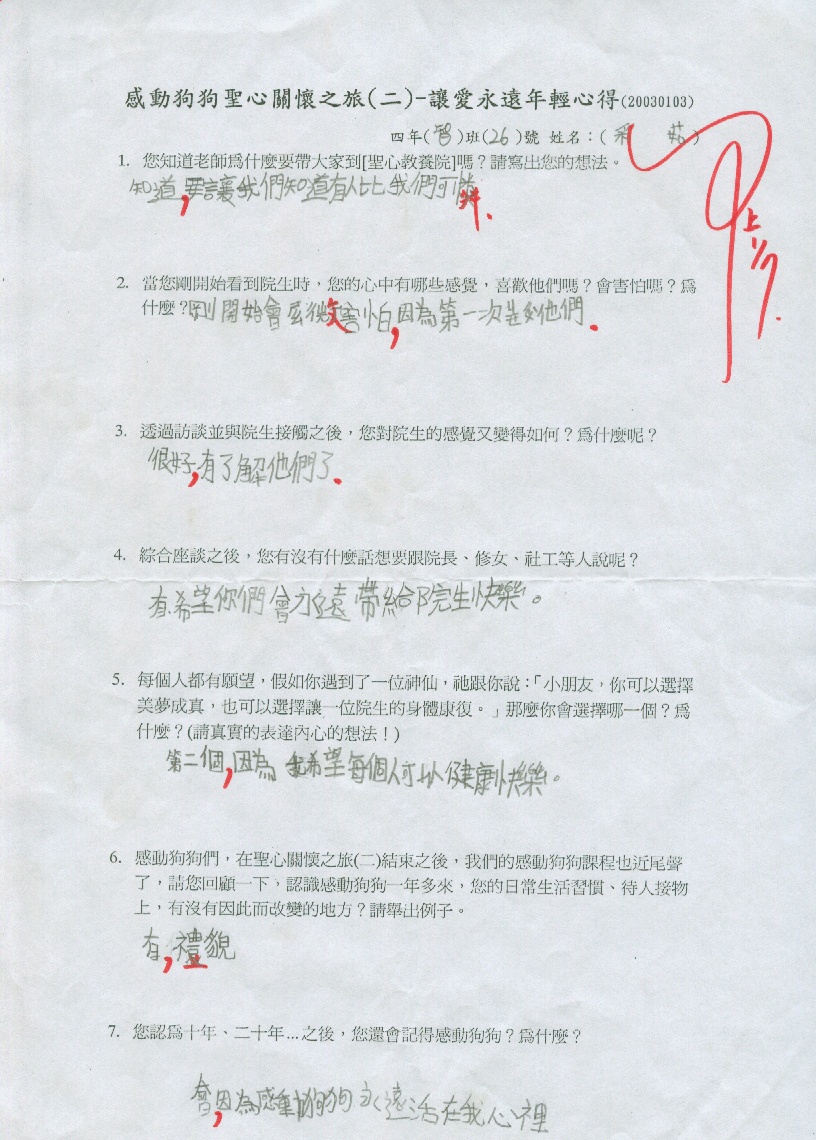 感動狗狗聖心關懷之旅(二)-讓愛永遠年輕心得(20030103)
四年(智)班(26)號 姓名:(采 茹)
1. 您知道老師爲什麼要帶大家到[聖心教養院]嗎?請寫出您的想法。
知道,要讓我們知道有人比我們可憐.
2. 當您剛開始看到院生時,您的心中有哪些感覺,喜歡他們嗎?會害怕嗎?爲
什麼?剛開始會 害怕,因為第一次 他們.
3. 透過訪談並與院生接觸之後,您對院生的感覺又變得如何?爲什麼呢?
很好,有了解他們了.
4. 綜合座談之後,您有沒有什麼話想要跟院長、修女、社工等人說呢?
有.希望你們會永遠帶給院生快樂。
5. 每個人都有願望,假如你遇到了一位神仙,祂跟你說:「小朋友,你可以選擇
美夢成真,也可以選擇讓一位院生的身體康復。」那麼你會選擇哪一個?爲
什麼?(請真實的表達內心的想法!)
第二個,因為我希望每個人可以健康快樂。
6. 感動狗狗們,在聖心關懷之旅(二)結束之後,我們的感動狗狗課程也近尾聲
了,請您回顧一下,認識感動狗狗一年多來,您的日常生活習慣、待人接物
上,有沒有因此而改變的地方?請舉出例子。
有,禮貌
7. 您認爲十年、二十年...之後,您還會記得感動狗狗?爲什麼?
會,因為感動狗狗永遠活在我心裡
甲上
1/7.